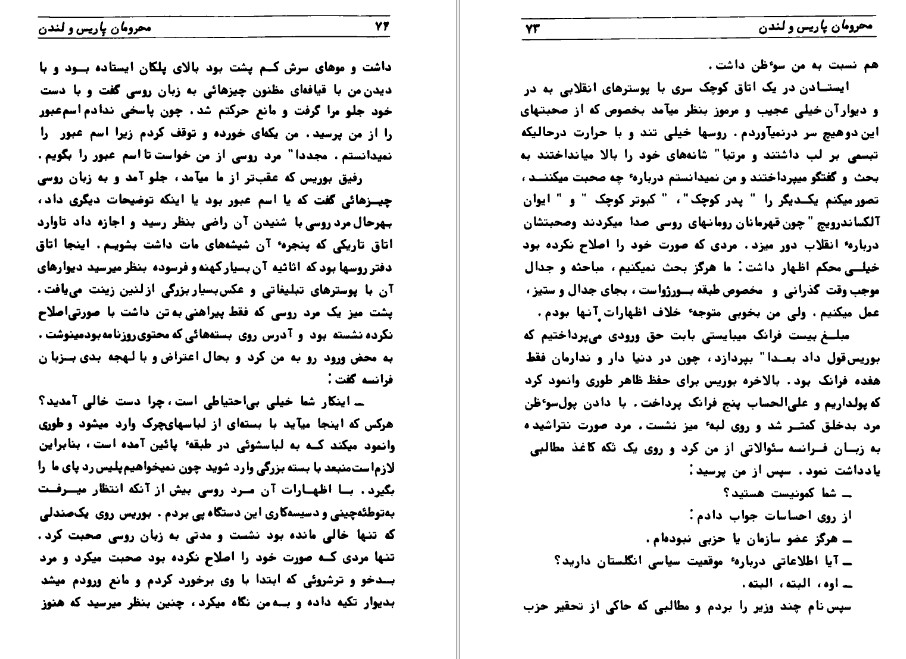 ۷۴ محرومان پاریس و لندن
داشت و موهای سرش کـم پشت بود بالای پلکان ایستاده بـود و با
دیدن من با قیافه‌ای مظنون چیزهائی به زبان روسی گفت و با دست
خود جلو مرا گرفت و مانع حرکتم شد. چون پاسخی ندادم اسم عبور
را از من پرسید. من یکه‌ای خورده و توقف کردم زیرا اسم عبور را
نمیدانستم. مجددا" مرد روسی از من خواست تا اسم عبور را بگویم.
رفیق بوریس که عقب‌تر از ما میآمد، جلو آمد و به زبان روسی
چیـزهائی گفت که یا اسم عبور بود یا اینکه توضیحات دیگری داد،
بهرحال مرد روسی با شنیدن آن راضی بنظر رسید و اجازه داد تا وارد
اتاق تاریکی که پنجره‌ٔ آن شیشه‌های مات داشت بشویـم. اینجا اتاق
دفتر روسها بود که اثاثیه آن بسیار کهنه و فرسوده بنظر میرسید دیوارهای
آن با پوسترهای تبلیغاتی و عکس بسیار بزرگی از لنین زینت می‌یافت.
پشت میز یک مرد روسی که فقط پیراهنی به تن داشت با صورتی اصلاح
نکرده نشسته بود و آدرس روی بسته‌هائی که محتوی روزنامه بود مینوشت.
به محض ورود رو به من کرد و بحال اعتراض و با لهجه بدی بـزبان
فرانسه گفت:
ــ اینکار شما خیلی بی‌احتیاطی است، چرا دست خالی آمدید؟
هرکس که اینجا میآید با بسته‌ای از لباسهای چرک وارد میشود و طوری
وانمود میکند کـه به لباسشوئی در طبقهٔ پائین آمده است، بنابراین
لازم است منبعد با بسته بزرگی وارد شوید چون نمیخواهیم پلیس رد پای ما را
بگیرد. بـا اظهـارات آن مـرد روسی بیش از آنکه انتظار میـرفـت
به توطئه‌چینی و دسیسه‌کاری این دستگاه پی بردم. بوریس روی یک صندلی
که تنها خالی مانده بود نشست و مدتی به زبان روسی صحبت کرد.
تنها مردی کـه صورت خود را اصلاح نکرده بود صحبت میکرد و مرد
بـدخو و ترشروئی که ابتدا با وی برخورد کردم و مانع ورودم میشد
بدیوار تکیه داده و بـه من نگاه میکرد، چنین بنظر میرسید که هنوز
محرومان پاریس و لندن ۷۳
هم نسبت به من سوءظن داشت.
ایستـادن در یک اتاق کوچک سری با پوسترهای انقلابی به در
و دیوار آن خیلی عجیب و مرموز بنظر میآمد بخصوص که از صحبتهای
این دو هیچ سر در نمیآوردم. روسها خیلی تند و با حرارت در حالیکه
تبسمی بر لب داشتند و مرتبا" شانه‌های خود را بالا میانداختند به
بحث و گفتگو میپرداختند و من نمیدانستم دربارهٔ چه صحبت میکننـد،
تصور میکنم یکـدیگر را " پدر کوچک"، " کبوتر کوچک " و " ایوان
آلکساندرویچ " چون قهرمانان رومانهای روسی صدا میکردند و صحبتشان
دربارهٔ انقلاب دور میزد. مردی که صورت خود را اصلاح نکرده بود
خیلـی محکم اظهار داشت: ما هرگز بحث نمیکنیم، مباحثه و جدال
موجب وقت گذرانی و مخصوص طبقه بـورژواست، بجای جدال و ستیز،
عمل میکنیم. ولی من بخوبی متوجهٔ خلاف اظهارات آنها بودم.
مبلـغ بیست فرانک میبایستی بابت حق ورودی می‌پرداختیم که
بوریس قول داد بعـدا" بپردازد، چون در دنیا دار و ندارمان فقط
هفده فرانک بود. بالاخره بوریس برای حفظ ظاهر طوری وانمود کرد
که پولداریم و علی‌الحساب پنج فرانک پرداخت. با دادن پول سوءظن
مرد بدخلق کمتـر شد و روی لبهٔ میز نشست. مرد صورت نتراشیده
به زبـان فـرانسه سئوالاتی از من کرد و روی یک تکه کاغذ مطالبی
یادداشت نمود. سپس از من پرسید:
ــ شما کمونیست هستید؟
از روی احساسات جواب دادم:
ــ هرگز عضو سازمان یا حزبی نبوده‌ام.
ــ آیا اطلاعاتی دربارهٔ موقعیت سیاسی انگلستان دارید؟
ــ اوه، البته، البته.
سپس نام چند وزیر را بردم و مطالبی که حاکی از تحقیر حزب